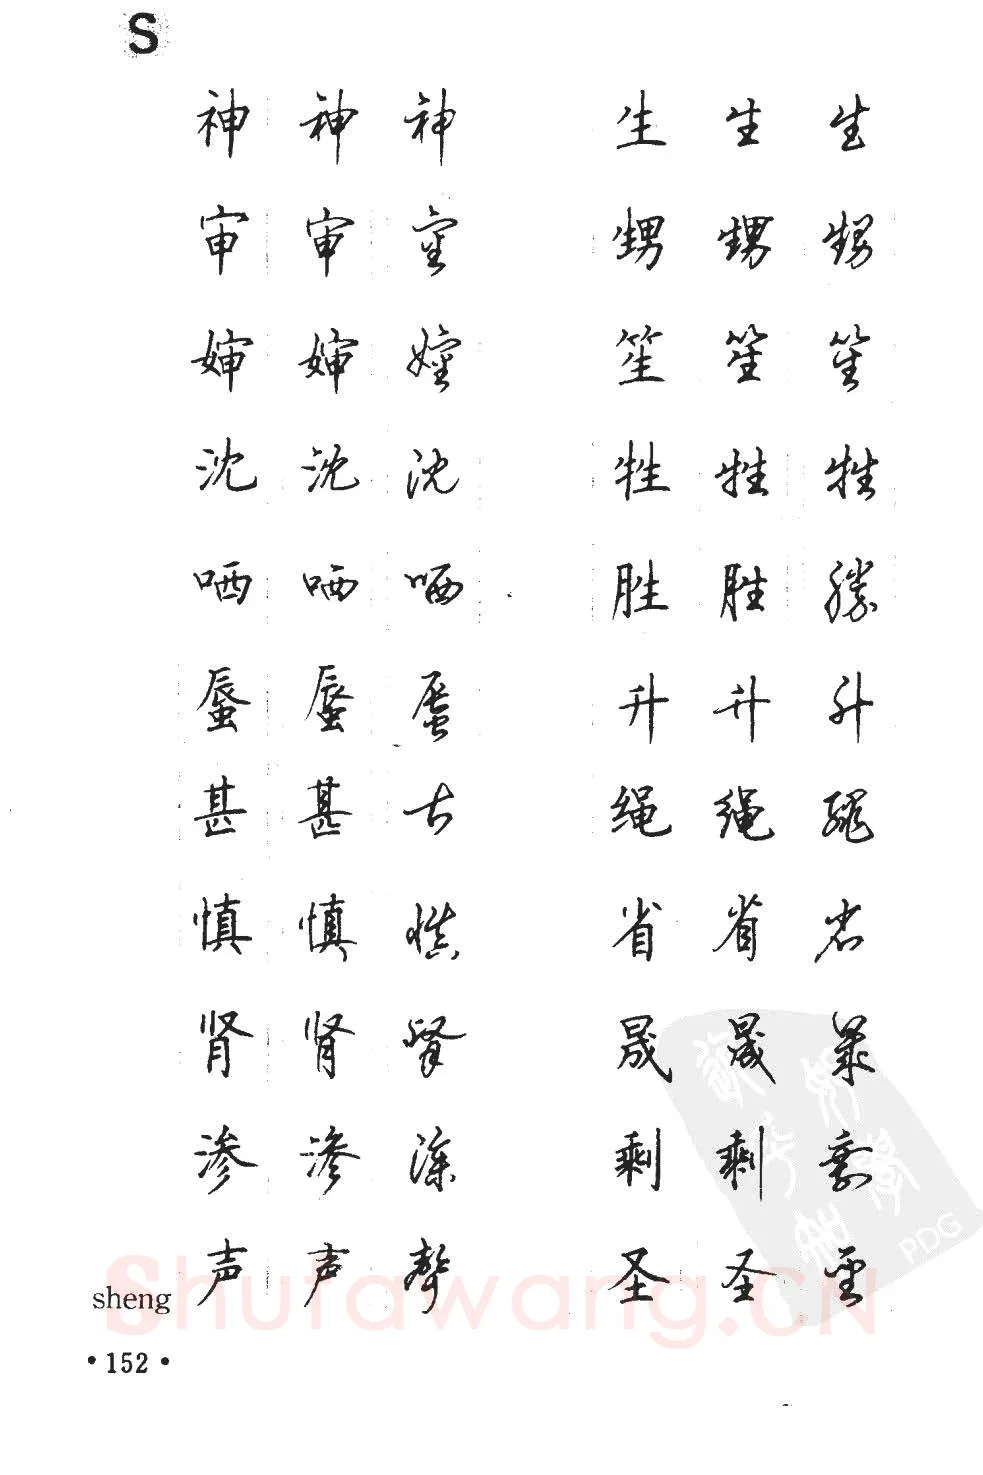 S
神 神 神 生 生 生
审 审 審 甥 甥 甥
婶 婶 嬸 笙 笙 笙
沈 沈 沈 牲 牲 牲
哂 哂 哂 胜 胜 勝
蜃 蜃 蜃 升 升 升
甚 甚 甚 绳 绳 繩
慎 慎 慎 省 省 省
肾 肾 腎 晟 晟 晟
渗 渗 滲 剩 剩 剩
sheng 声 声 聲 圣 圣 聖
·152·
Shufawang.CN
PDG